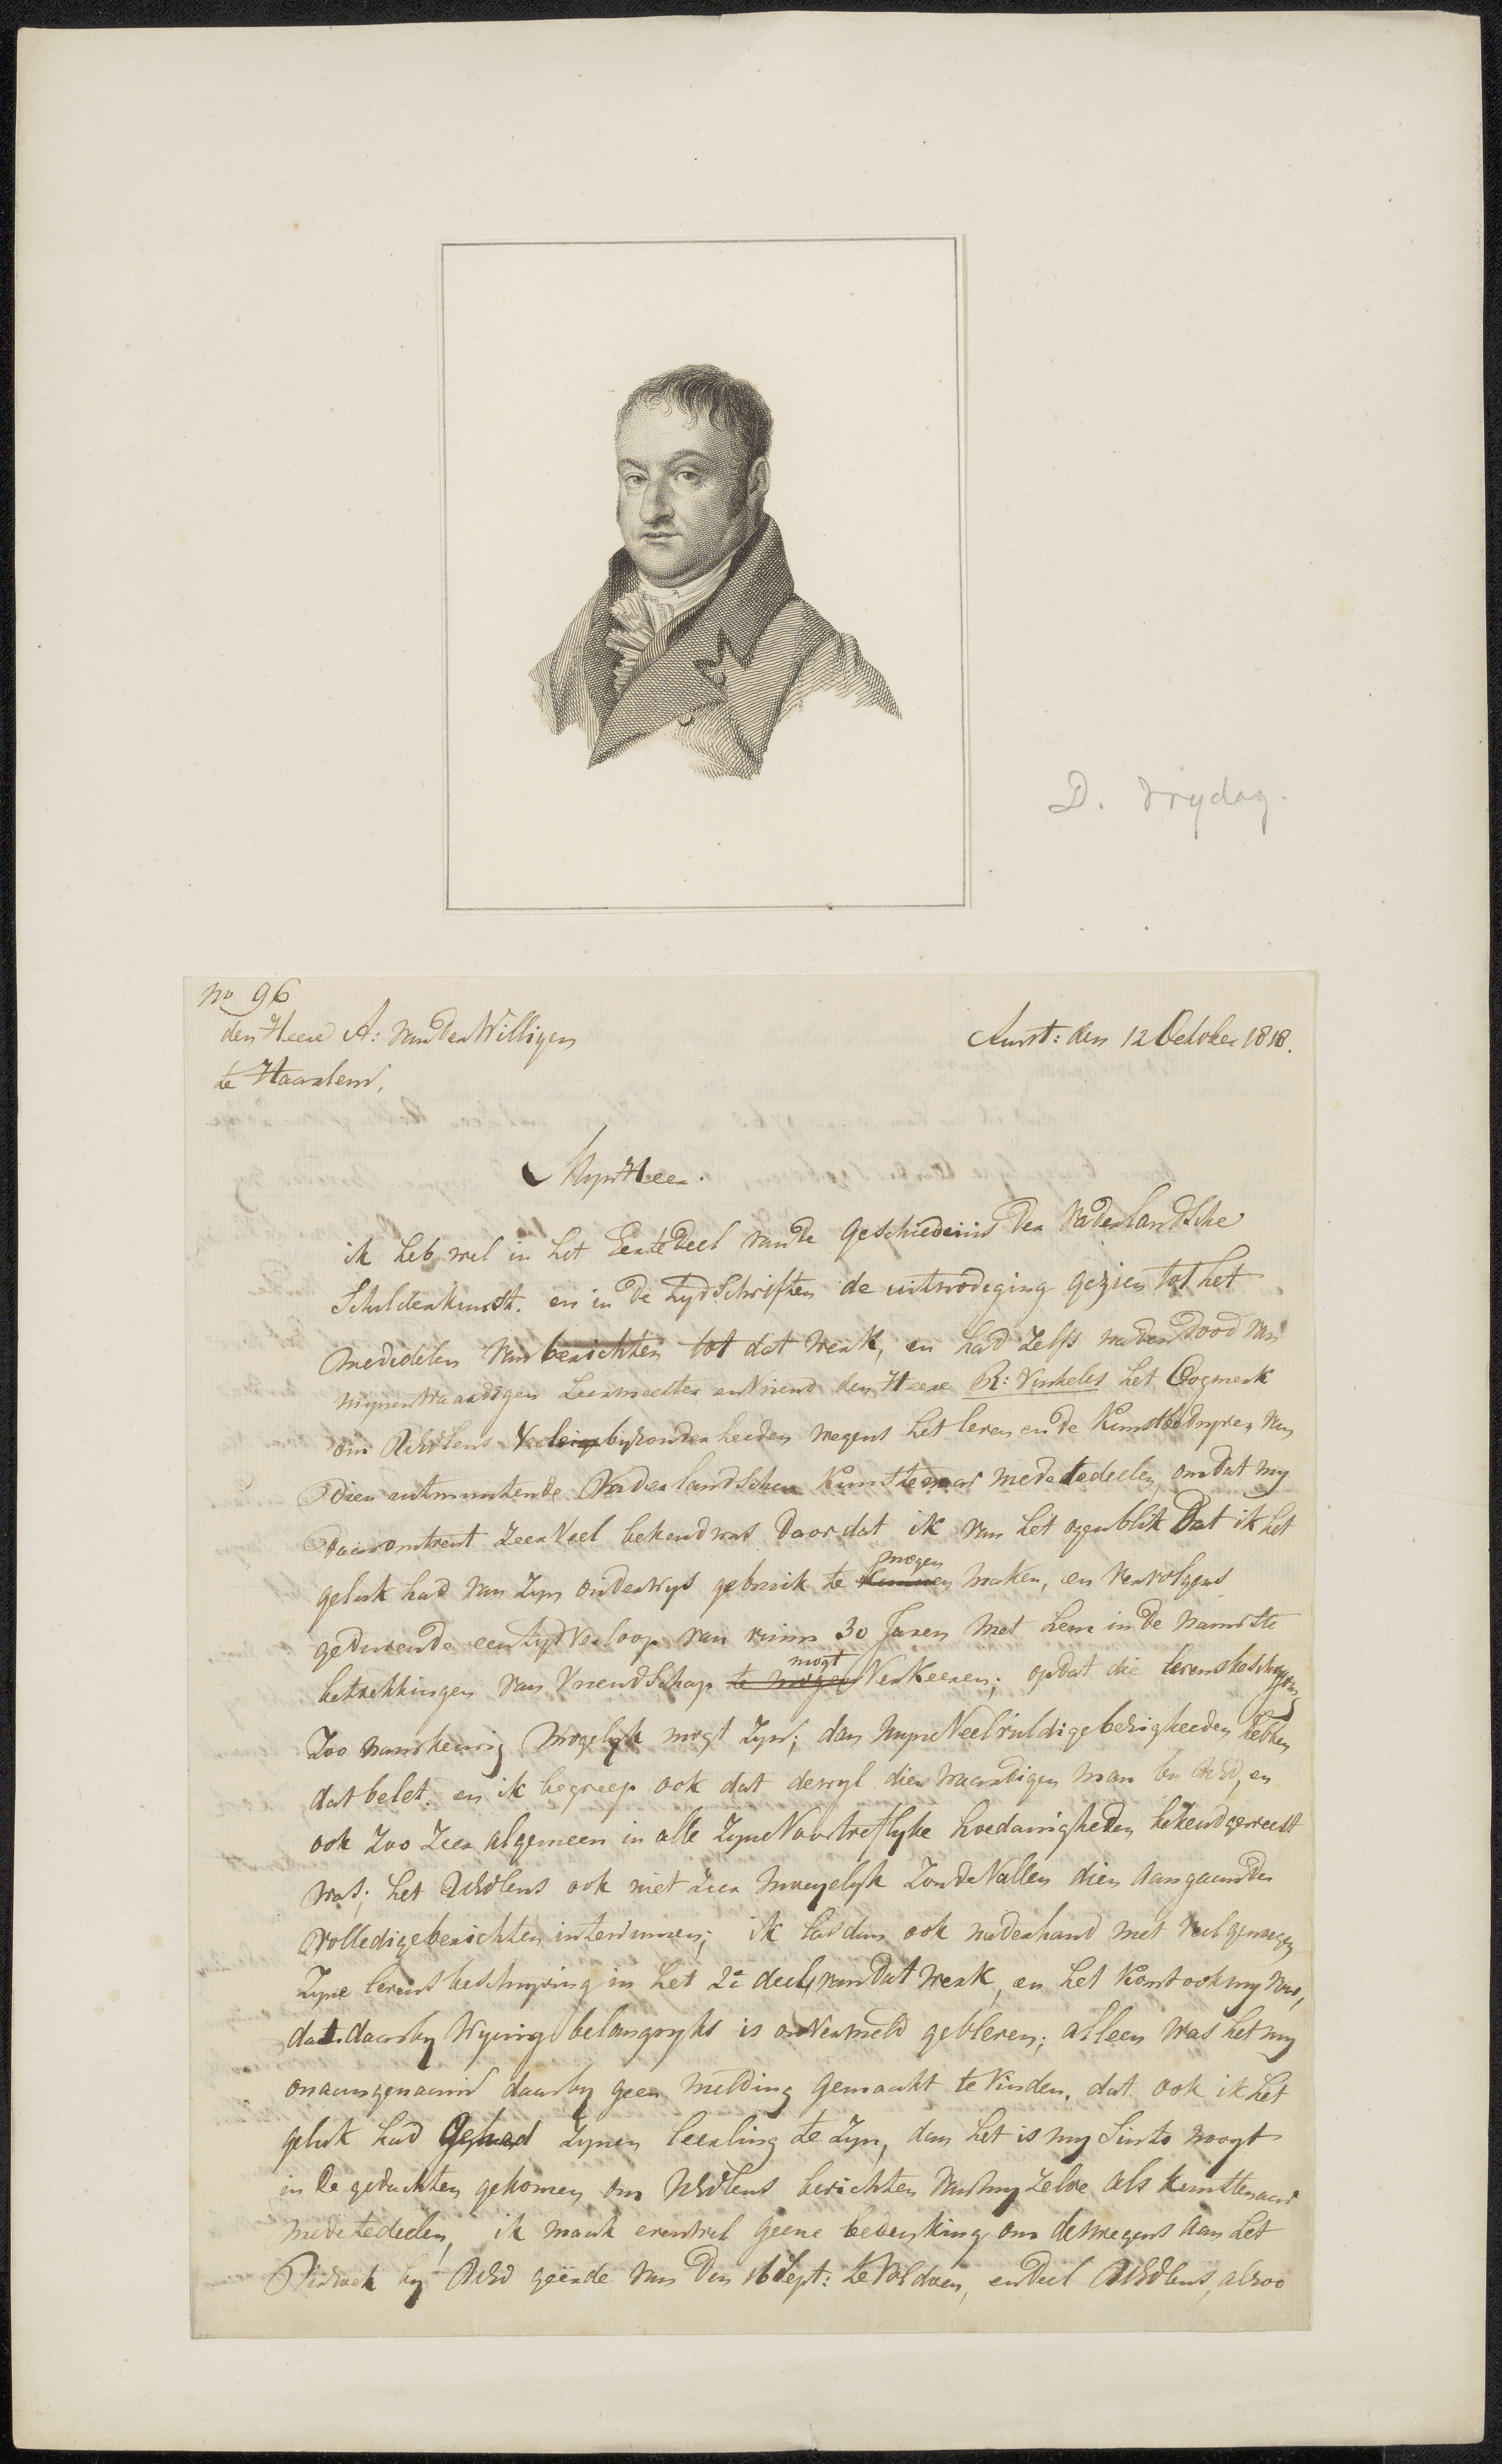 D. Vrydag.
no 96
den Heere A: van der Willigen
te Haarlem,
Amst: den 12 October 1818.
Myn Heer.
ik heb wel in het Eerste deel van de Geschiedenis der Vaderlandsche
Schilderkunst. en in de tydschriften de uitnodiging gezien tot het
mededelen van berichten tot dat werk, en had zelfs na den dood van
mynen waardigen Leermeester en vriend den Heere R: Vinkeles het Oogmerk
om UwEdlens byzonderheeden wegens het leven en de Kunstbedryven van
dien uitmuntende Vaderlandschen Kunstenaar mede te deelen, omdat my
daaromtrent zeer veel bekend was door dat ik van het ogenblik Dat ik het
geluk had van zyn onderwys gebruik te kunnen mogen maken, en vervolgens
gedurende een tydverloop van ruim 30 Jaren met hem in de nauwste
betrekkingen van vriendschap te mogen mogt verkeeren; opdat die levensbeschryving
zoo nauwkeurig mogelyk mogt zyn; dan myne veelvuldige bezigheeden hebben
dat belet. en ik begreep ook dat dewyl dien waardigen man by UEd, en
ook zoo zeer algemeen in alle zyne voortreflyke hoedanigheden bekend geweest
was; het UEdlens ook niet zeer moeyelyk zoude vallen dien aangaande
volledige berichten intewinnen; ik las dan ook naderhand met veel genoegen
zyne levensbeschryving in het 2e deel van dat werk, en het komt ook my voor,
dat daarby wynig belangryks is onvermeld gebleven; alleen was het my
onaangenaam daarby geen melding gemaakt te vinden, dat ook ik het
geluk had gehad zynen leerling te zyn, dan het is my sints nooyt
in de gedachten gekomen om UEdlens berichten van my zelve als kunstenaar
mede te deelen, ik maak evenwel geene bedenking om deswegens aan het
verzoek by UEd geëerde van den 16 Sept: te voldoen, en deel UEdlens, alzoo